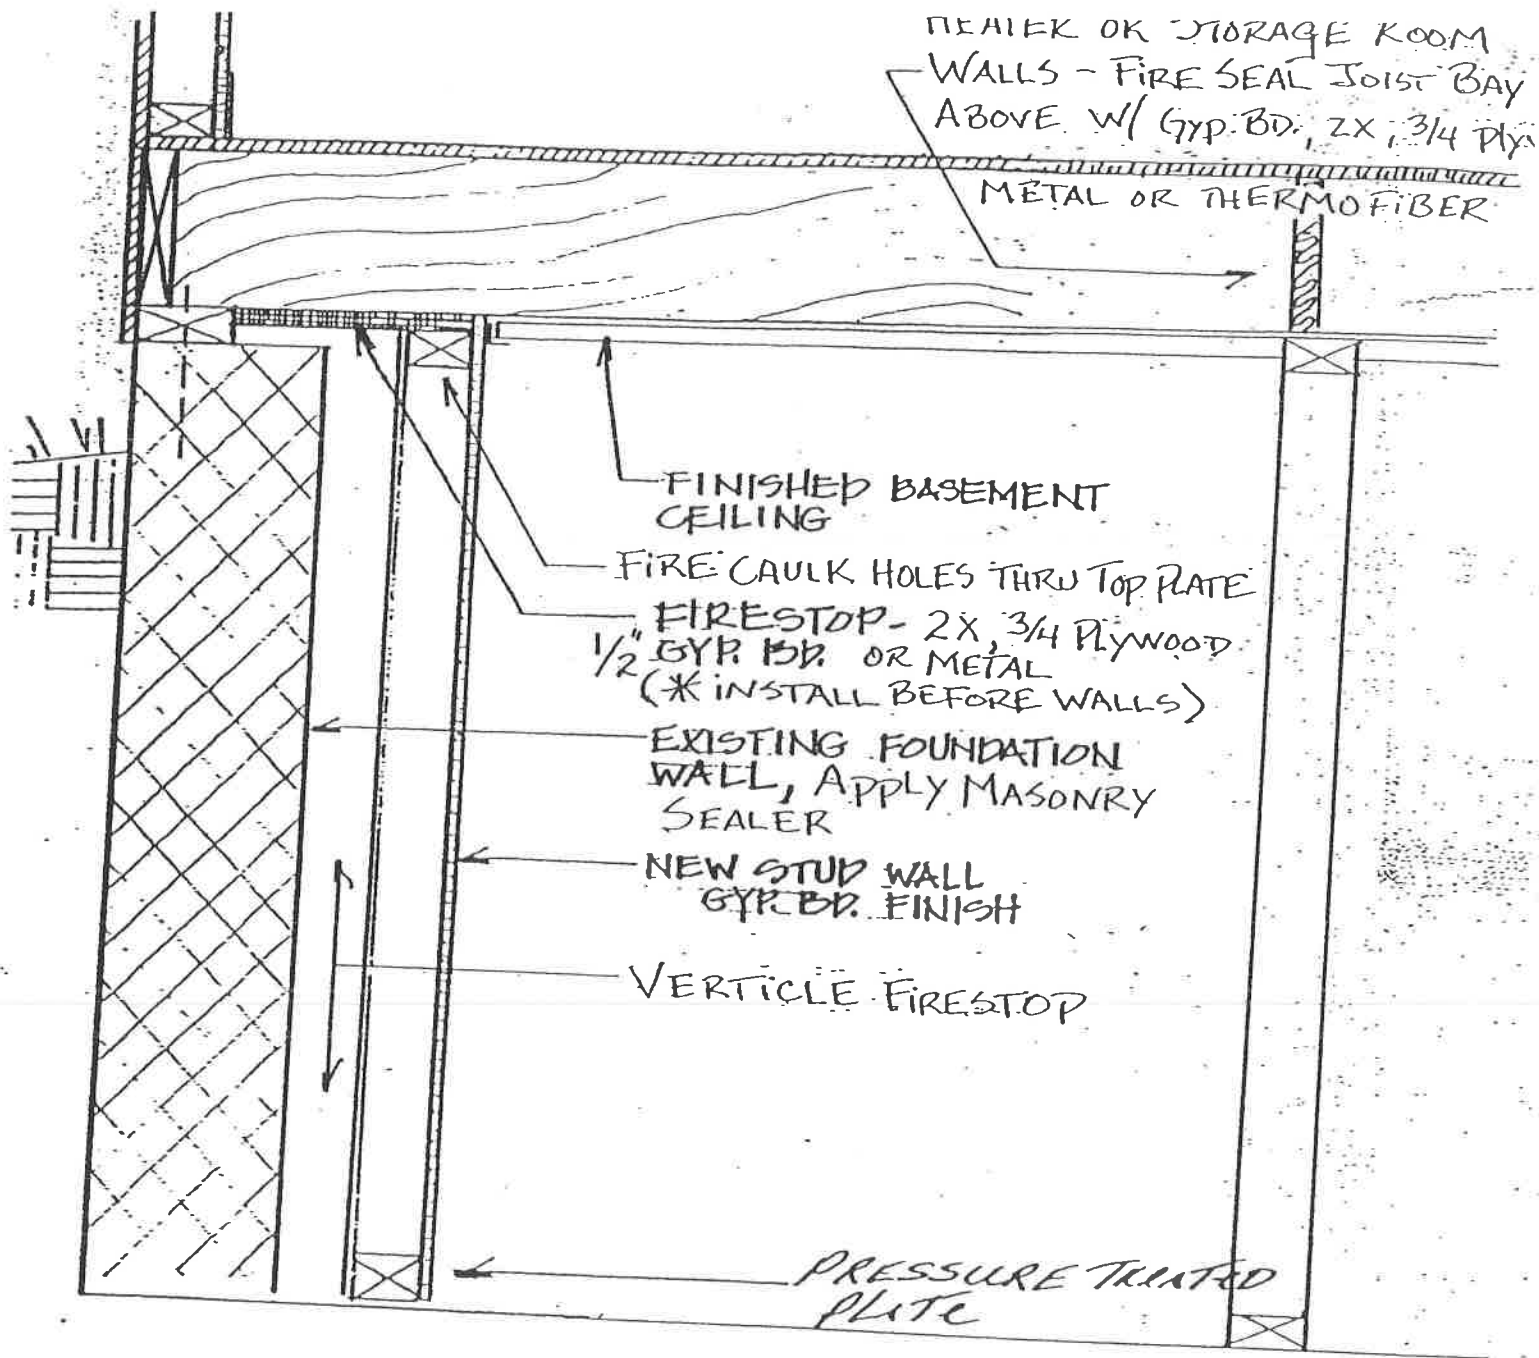 HEATER OR STORAGE ROOM
WALLS - FIRE SEAL JOIST BAY
ABOVE W/ GYP. BD., 2X, 3/4 PLY.
METAL OR THERMOFIBER
FINISHED BASEMENT
CEILING
FIRE CAULK HOLES THRU TOP PLATE
FIRESTOP - 2X, 3/4 PLYWOOD
1/2" GYP. BD. OR METAL
(* INSTALL BEFORE WALLS)
EXISTING FOUNDATION
WALL, APPLY MASONRY
SEALER
NEW STUD WALL
GYP. BD. FINISH
VERTICLE FIRESTOP
PRESSURE TREATED
PLATE